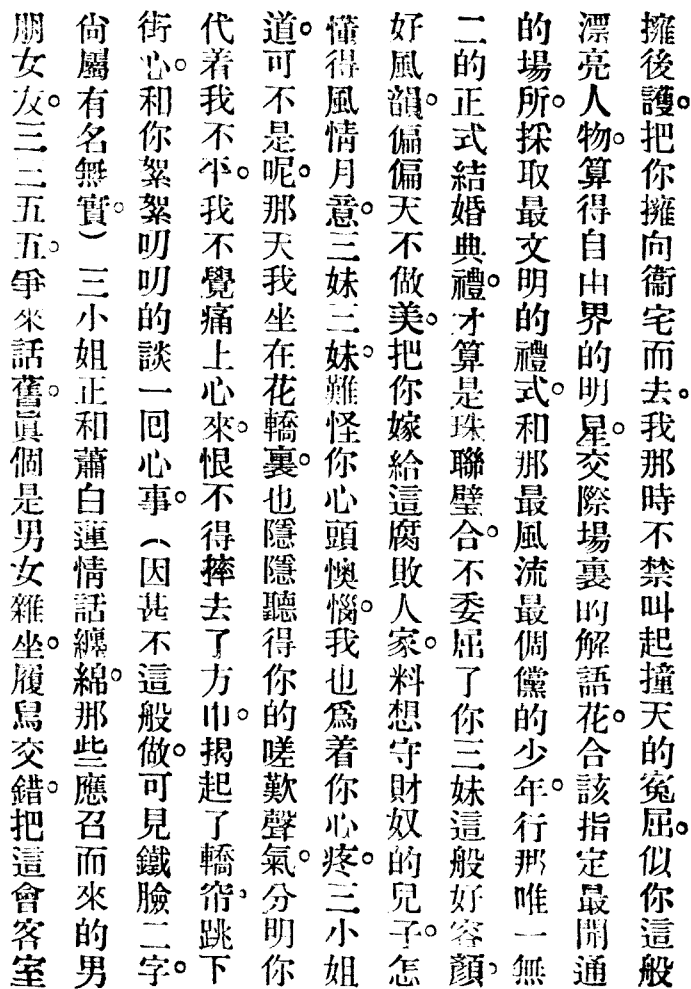 擁後護。把你擁向衞宅而去。我那時不禁叫起撞天的寃屈。似你這般
漂亮人物。算得自由界的明星。交際場裏的解語花。合該指定最開通
的場所。採取最文明的禮式。和那最風流最倜儻的少年。行那唯一無
二的正式結婚典禮。才算是珠聯璧合。不委屈了你三妹這般好容顏，
好風韻。偏偏天不做美。把你嫁給這腐敗人家。料想守財奴的兒子。怎
懂得風情月意。三妹三妹。難怪你心頭懊惱。我也爲着你心疼。三小姐
道。可不是呢。那天我坐在花轎裏。也隱隱聽得你的嗟歎聲氣。分明你
代着我不平。我不覺痛上心來。恨不得摔去了方巾。揭起了轎帘，跳下
街心。和你絮絮叨叨的談一囘心事。（因甚不這般做。可見鐵臉二字。
尙屬有名無實。）三小姐正和蕭白蓮情話纏綿。那些應召而來的男
朋女友。三三五五。爭來話舊。眞個是男女雜坐。履舃交錯。把這會客室